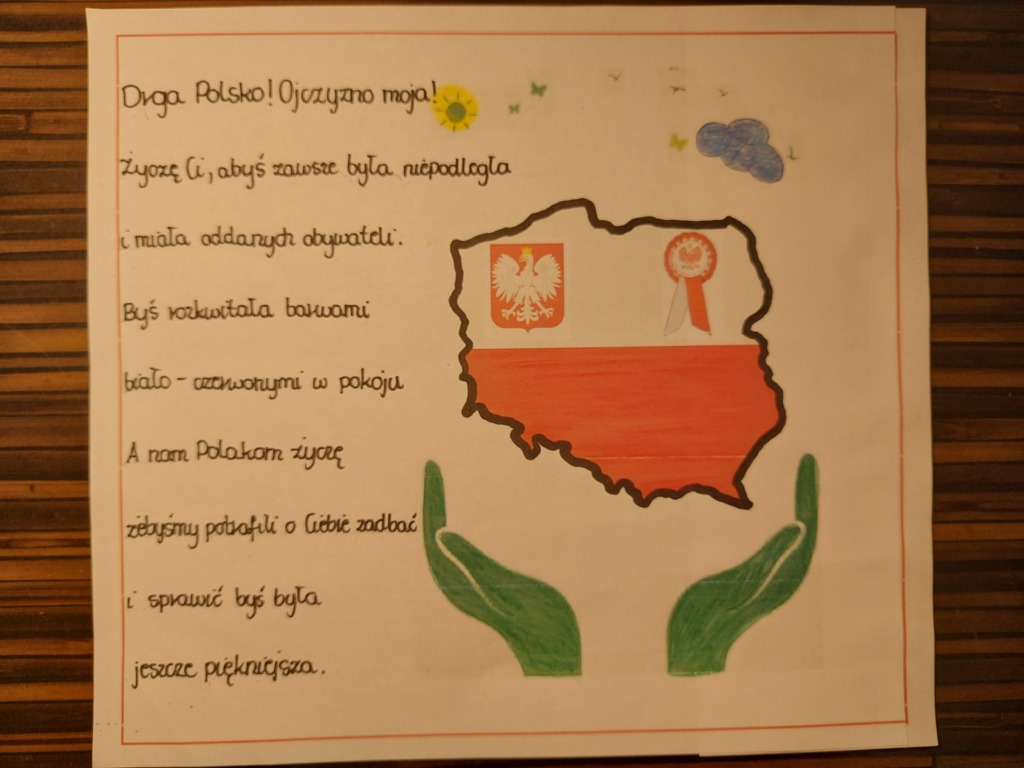 Drga Polsko! Ojczyzno moja!
Życzę Ci, abyś zawsze była niepodległa
i miała oddanych obywateli.
Byś rozkwitała barwami
biało - czerwonymi w pokoju
A nam Polakom życzę
żebyśmy potrafili o Ciebie zadbać
i sprawić byś była
jeszcze piękniejsza.